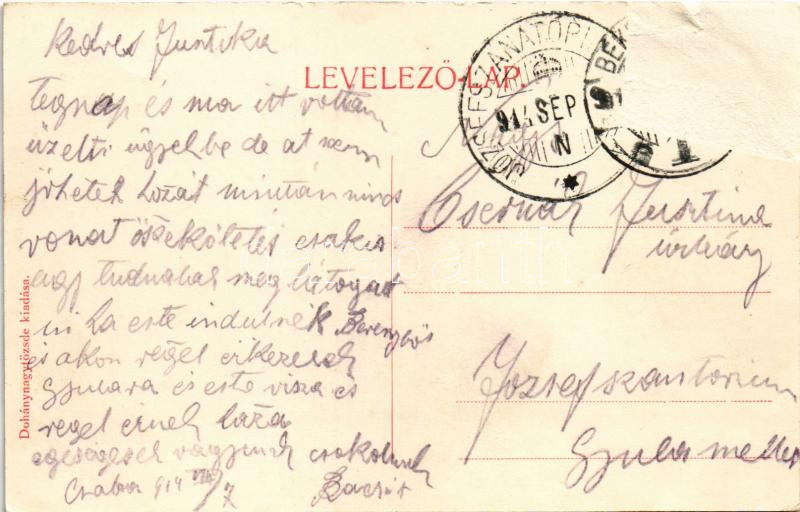 Kedves Jusztika
LEVELEZŐ-LAP.
tegnap és ma itt voltam
üzleti ügyelbe de at nem
jöhetek hozát miután nincs
vonat öszekötetés csakis
ugy tudnalak meg látogat
ni ha este indulnék Berenybös
és akor regel erkezenek
Gyulara és este visza es
regel érnek haza
egeségesek vagyunk csokolunk
Csaba 914 VIII/7
JÓZSEFSZANATÓRI
914 SEP
N
BÉK
Csernák Jusztina
úrhölgy
Jozsefszanatorium
Gyula mellet
Dohánynagytőzsde kiadása.